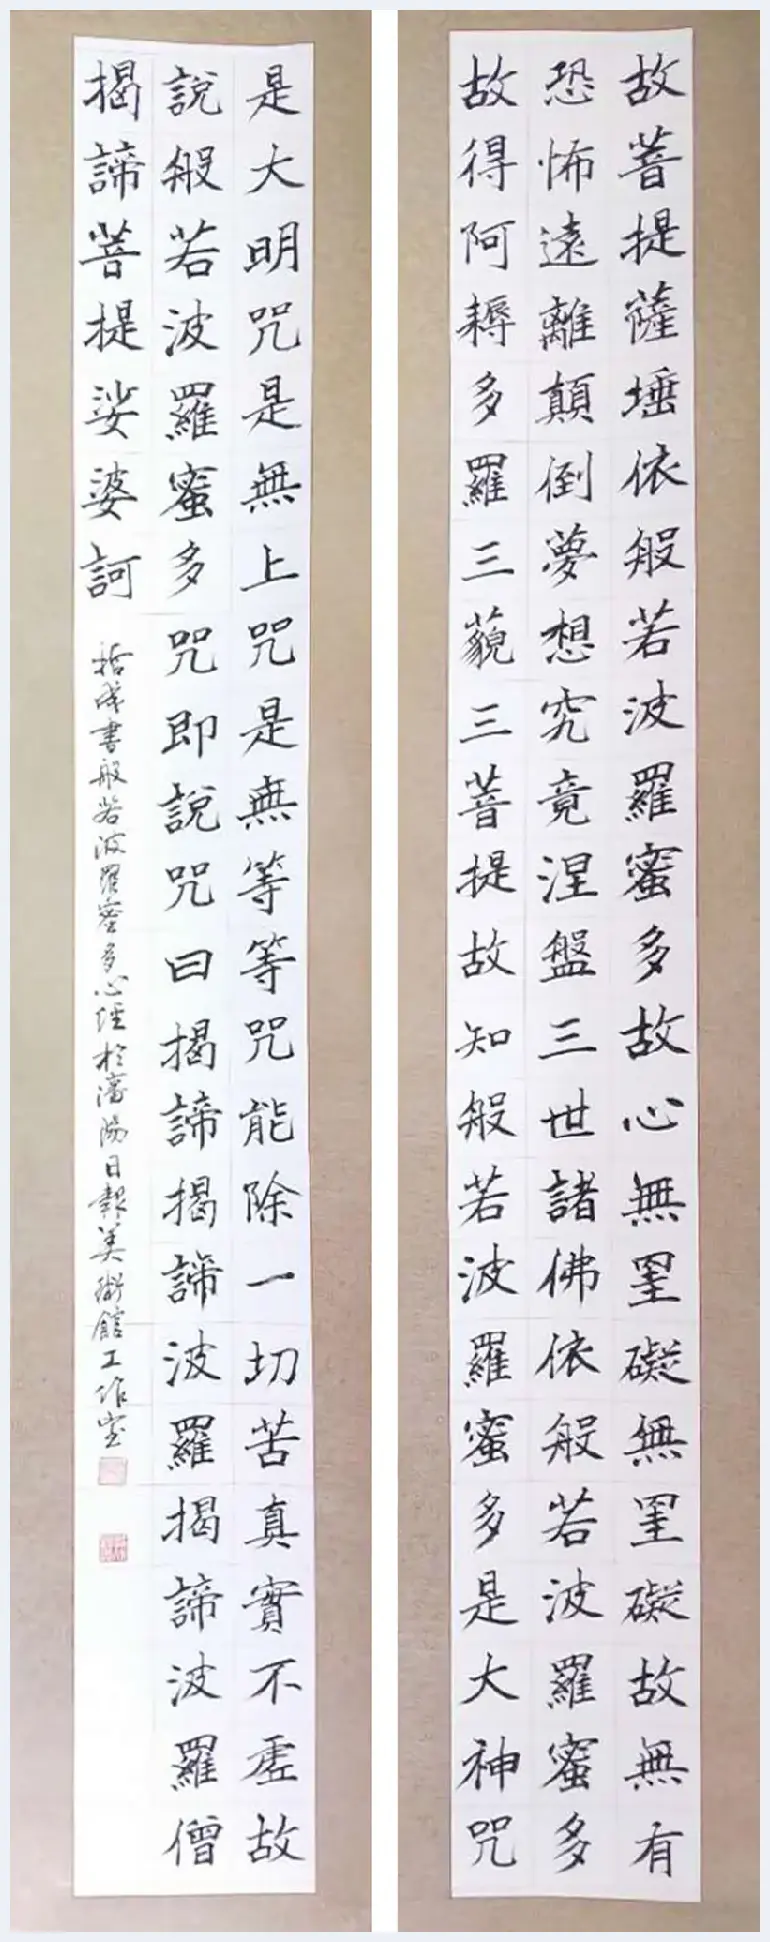 故菩提薩埵依般若波羅蜜多故心無罣礙無罣礙故無有
恐怖遠離顛倒夢想究竟涅盤三世諸佛依般若波羅蜜多
故得阿耨多羅三藐三菩提故知般若波羅蜜多是大神咒
是大明咒是無上咒是無等等咒能除一切苦真實不虛故
說般若波羅蜜多咒即說咒曰揭諦揭諦波羅揭諦波羅僧
揭諦菩提娑婆訶
成書般若波羅蜜多心經於瀋陽日報美術館工作室